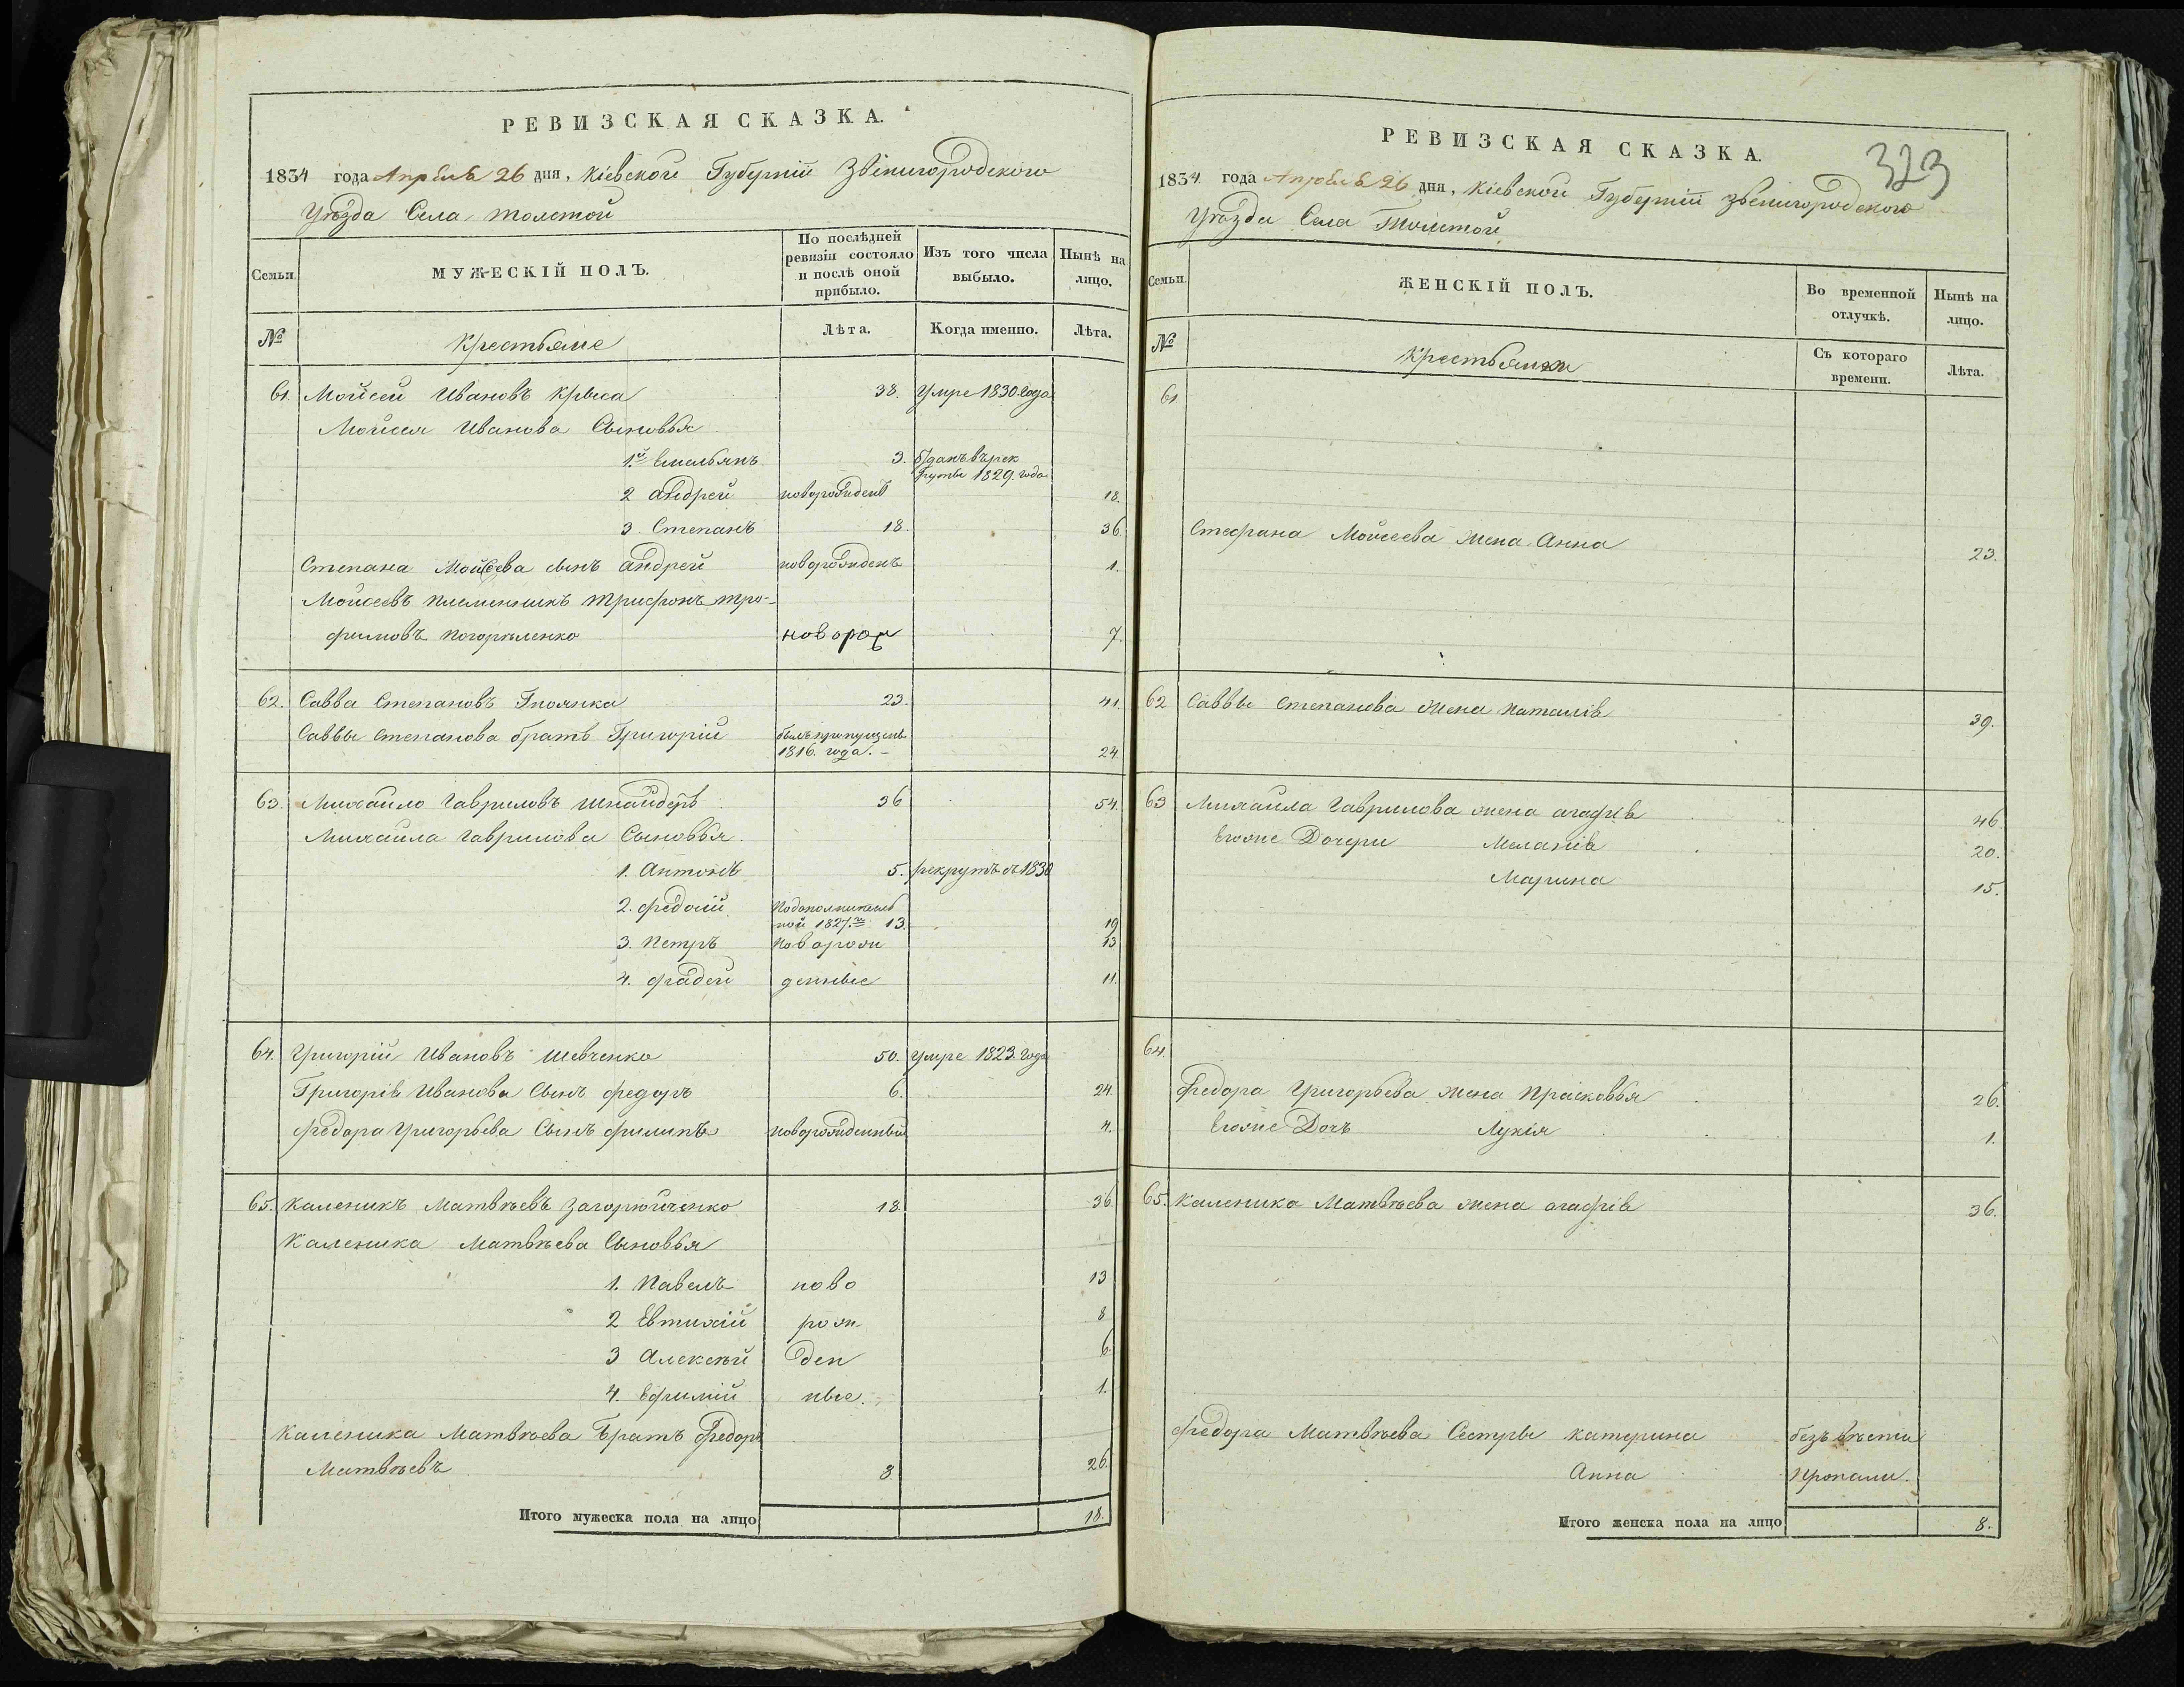 РЕВИЗСКАЯ СКАЗКА.
1834 года Апреля 26 дня, Кіевской Губерніи Звенигородского
Уѣзда Села Толстой
Семьи.
МУЖЕСКІЙ ПОЛЪ.
По послѣдней ревизіи состояло и послѣ оной прибыло.
Изъ того числа выбыло.
Нынѣ на лицо.
№
Крестьяне
Лѣта.
Когда именно.
Лѣта.
61. Мойсей Ивановъ Крыса 38. Умре 1830. года
Мойсея Иванова Сыновья
1.й Емельянъ 3. Отданъ въ рек
руты 1829. года
2 Андрей новорожденъ 18.
3. Степанъ 18. 36.
Степана Мойсеева сынъ Андрей новорожденъ 1.
Мойсеевъ племенникъ Трифонъ Тро-
фимовъ Погорѣленко новорож 7.
62. Савва Степановъ Гноянка 23. 41.
Саввы Степанова братъ Григорій былъ пропущенъ
1816. года. – 24.
63. Михайло Гавриловъ Шнайдеръ 36 54.
Михайла Гаврилова Сыновья.
1. Антонъ 5. рекрутъ съ 1830
2. Федосій Подополнитель
ной 1827.го 13. 19
3. Петръ Новорож 13
4. Фадей денные 11.
64. Григорій Ивановъ Шевченко 50. умре 1823. года
Григорія Иванова Сынъ Федоръ 6. 24.
Федора Григорьева Сынъ Филипъ новорожденный 4.
65. Каленикъ Матвѣевъ Загорюйченко 18 36
Каленика Матвѣева Сыновья
1. Павелъ ново 13
2 Евтихій рож 8
3 Алексѣй ден 6.
4. Ефимій ные. 1.
Каленика Матвѣева Братъ Федоръ
Матвѣевъ 8. 26.
Итого мужеска пола на лицо 18.
323
РЕВИЗСКАЯ СКАЗКА.
1834. года Апреля 26 дня, Кіевской Губерніи Звенигородского
Уѣзда Села Толстой
Семьи.
ЖЕНСКІЙ ПОЛЪ.
Во временной отлучкѣ.
Нынѣ на лицо.
№
Крестьянки
Съ котораго времени.
Лѣта.
61
Стефана Мойсеева жена Анна 23.
62 Саввы Степанова жена Наталія 39.
63 Михайла Гаврилова жена Агафія 46
Егоже Дочери Меланія 20.
Марина 15.
64
Федора Григорьева жена Прасковья 26.
Егоже Дочь Лукія 1.
65. Каленика Матвѣева жена Агафія 36.
Федора Матвѣева Сестры Катерина безъ вѣсти
Анна пропали.
Итого женска пола на лицо 8.